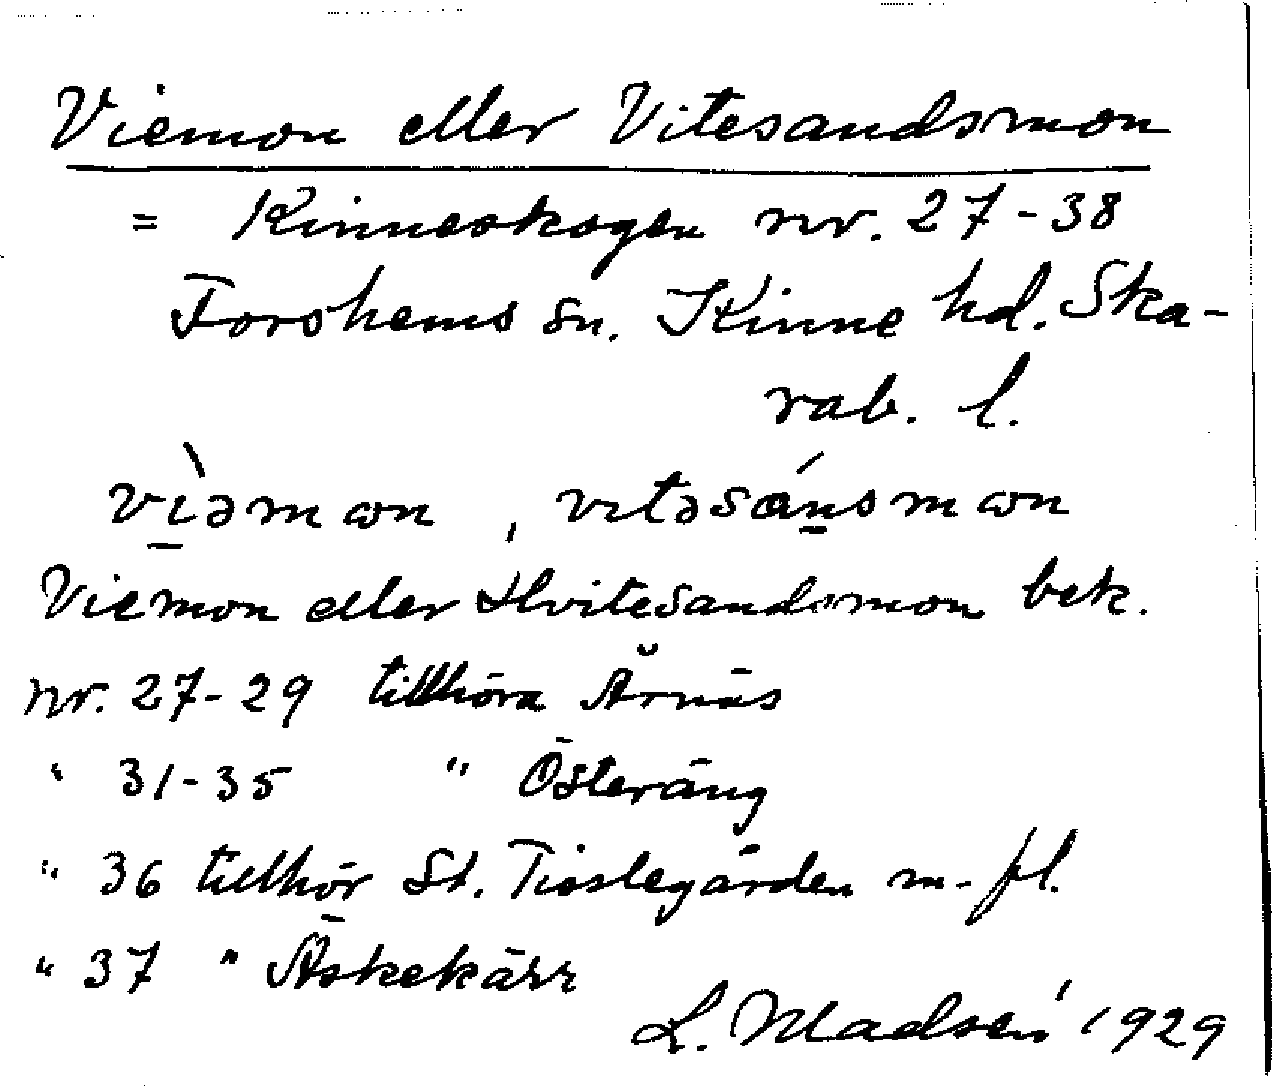 Viemon eller Vitesandsmon
= Kinneskogen nr. 27-38
Forshems sn. Kinne hd. Ska-
rab. l.
vìəmωn , vɩtəsánsmωn
Viemon eller Hvitesandsmon bek.
nr. 27-29 tillhöra Årnäs
" 31-35 " Österäng
" 36 tillhör St. Tiaslegården m. fl.
" 37 " Äskekärr
L. Madsén 1929